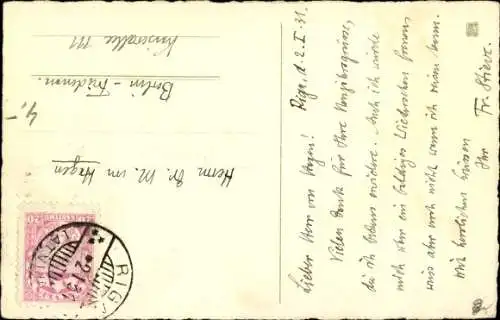 Riga, d. 2. I. 31.
Lieber Herr von Hagen!
Vielen Dank für Ihre Neujahrsgrüsse,
die ich bestens erwidere. Auch ich würde
mich über ein baldiges Wiedersehen freuen
weiss aber noch nicht wann ich reisen kann.
Mit herzlichen Grüssen
Ihr
Fr. Stieve.
Herrn Dr. M. von Hagen
Berlin-Friedenau.
4,-
RIGA
LATVIJA
20